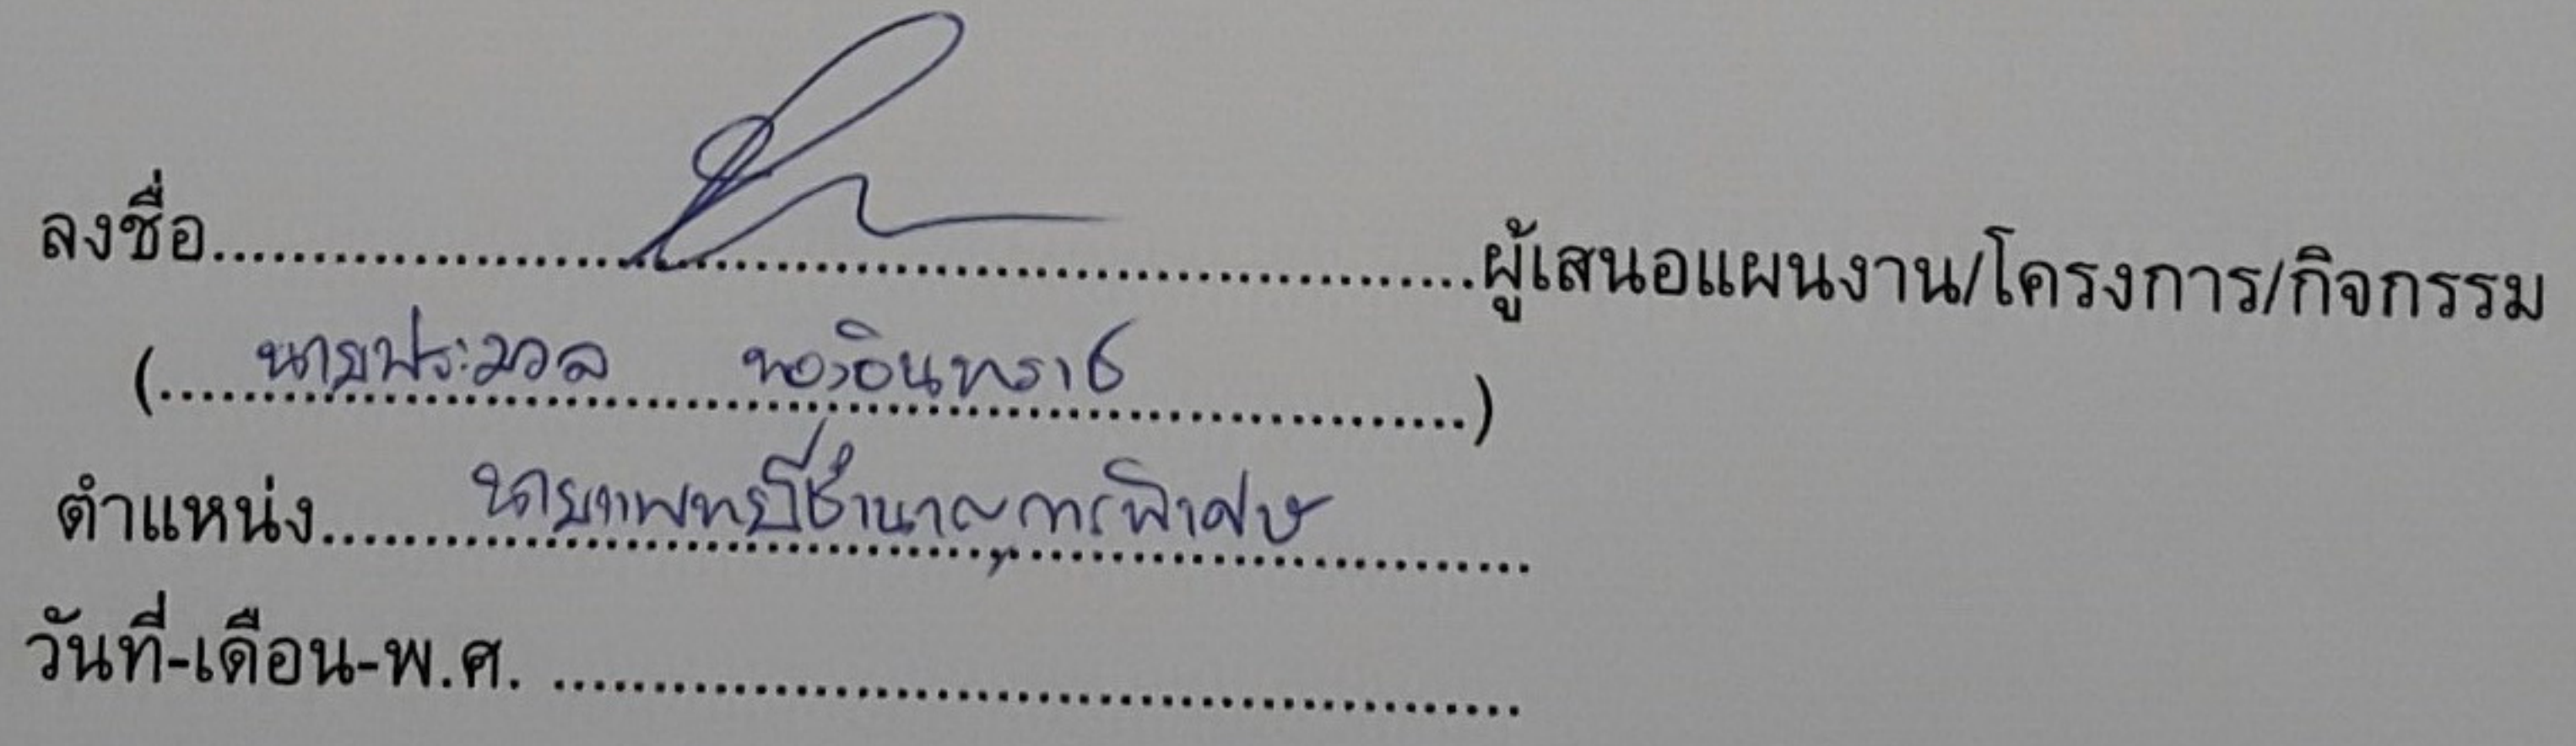 ลงชื่อ........................................................ผู้เสนอแผนงาน/โครงการ/กิจกรรม
(.... นายประมวล ....)
ตำแหน่ง.... นายแพทย์ชำนาญการพิเศษ ....
วันที่-เดือน-พ.ศ. ........................................................